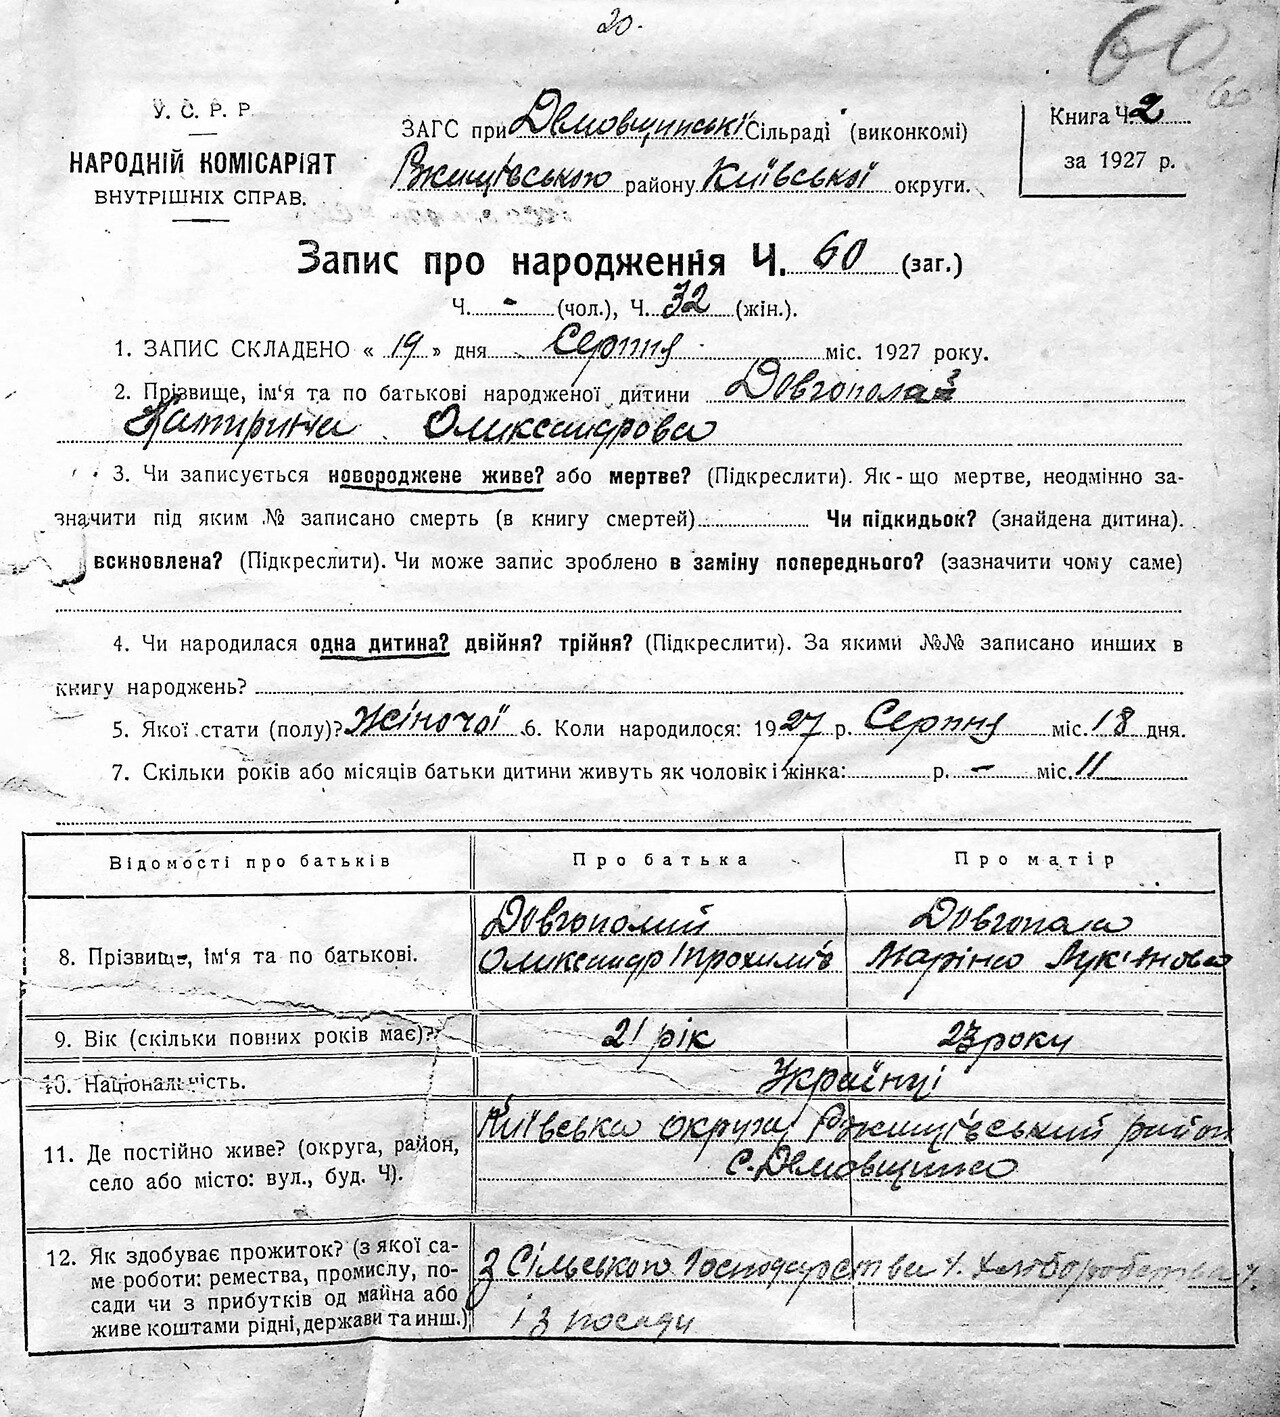 20.
60
У. С. Р. Р.
НАРОДНІЙ КОМІСАРІЯТ
ВНУТРІШНІХ СПРАВ.
ЗАГС при Демовщинські Сільраді (виконкомі)
Ржищівського району Київської округи.
Книга Ч. 2
за 1927 р.
Запис про народження Ч. 60 (заг.)
Ч. - (чол.), Ч. 32 (жін.).
1. ЗАПИС СКЛАДЕНО « 19 » дня Серпня міс. 1927 року.
2. Прізвище, ім'я та по батькові народженої дитини Довгопола
Катирина Олександрова
3. Чи записується новороджене живе? або мертве? (Підкреслити). Як-що мертве, неодмінно за-
значити під яким № записано смерть (в книгу смертей) Чи підкидьок? (знайдена дитина).
всиновлена? (Підкреслити). Чи може запис зроблено в заміну попереднього? (зазначити чому саме)
4. Чи народилася одна дитина? двійня? трійня? (Підкреслити). За якими №№ записано инших в
книгу народжень?
5. Якої стати (полу)? Жіночої 6. Коли народилося: 1927 р. Серпня міс. 18 дня.
7. Скільки років або місяців батьки дитини живуть як чоловік і жінка: р. - міс. 11
Відомості про батьків Про батька Про матір
Довгополий Довгопола
8. Прізвище, ім'я та по батькові. Олександр Прохилів Маріна Лук'янова
9. Вік (скільки повних років має)? 21 рік 23 роки
10. Національність. Українці
11. Де постійно живе? (округа, район, Київська округа Ржищівський район
село або місто: вул., буд. Ч). с. Демовщина
12. Як здобуває прожиток? (з якої са-
ме роботи: ремества, промислу, по- З Сільського Господарства т. Хліборобства
сади чи з прибутків од майна або
живе коштами рідні, держави та инш.) і з посади